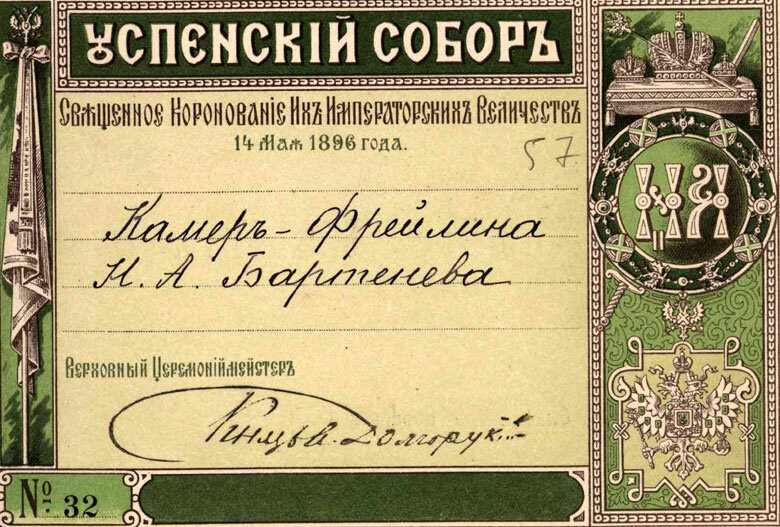 УСПЕНСКІЙ СОБОРЪ
Священное Коронованіе Ихъ Императорскихъ Величествъ
14 Мая 1896 года.
57.
Камеръ-Фрейлина
Н. А. Бартенева
Верховный Церемоніймейстеръ
Князь Долгорукій
№ 32